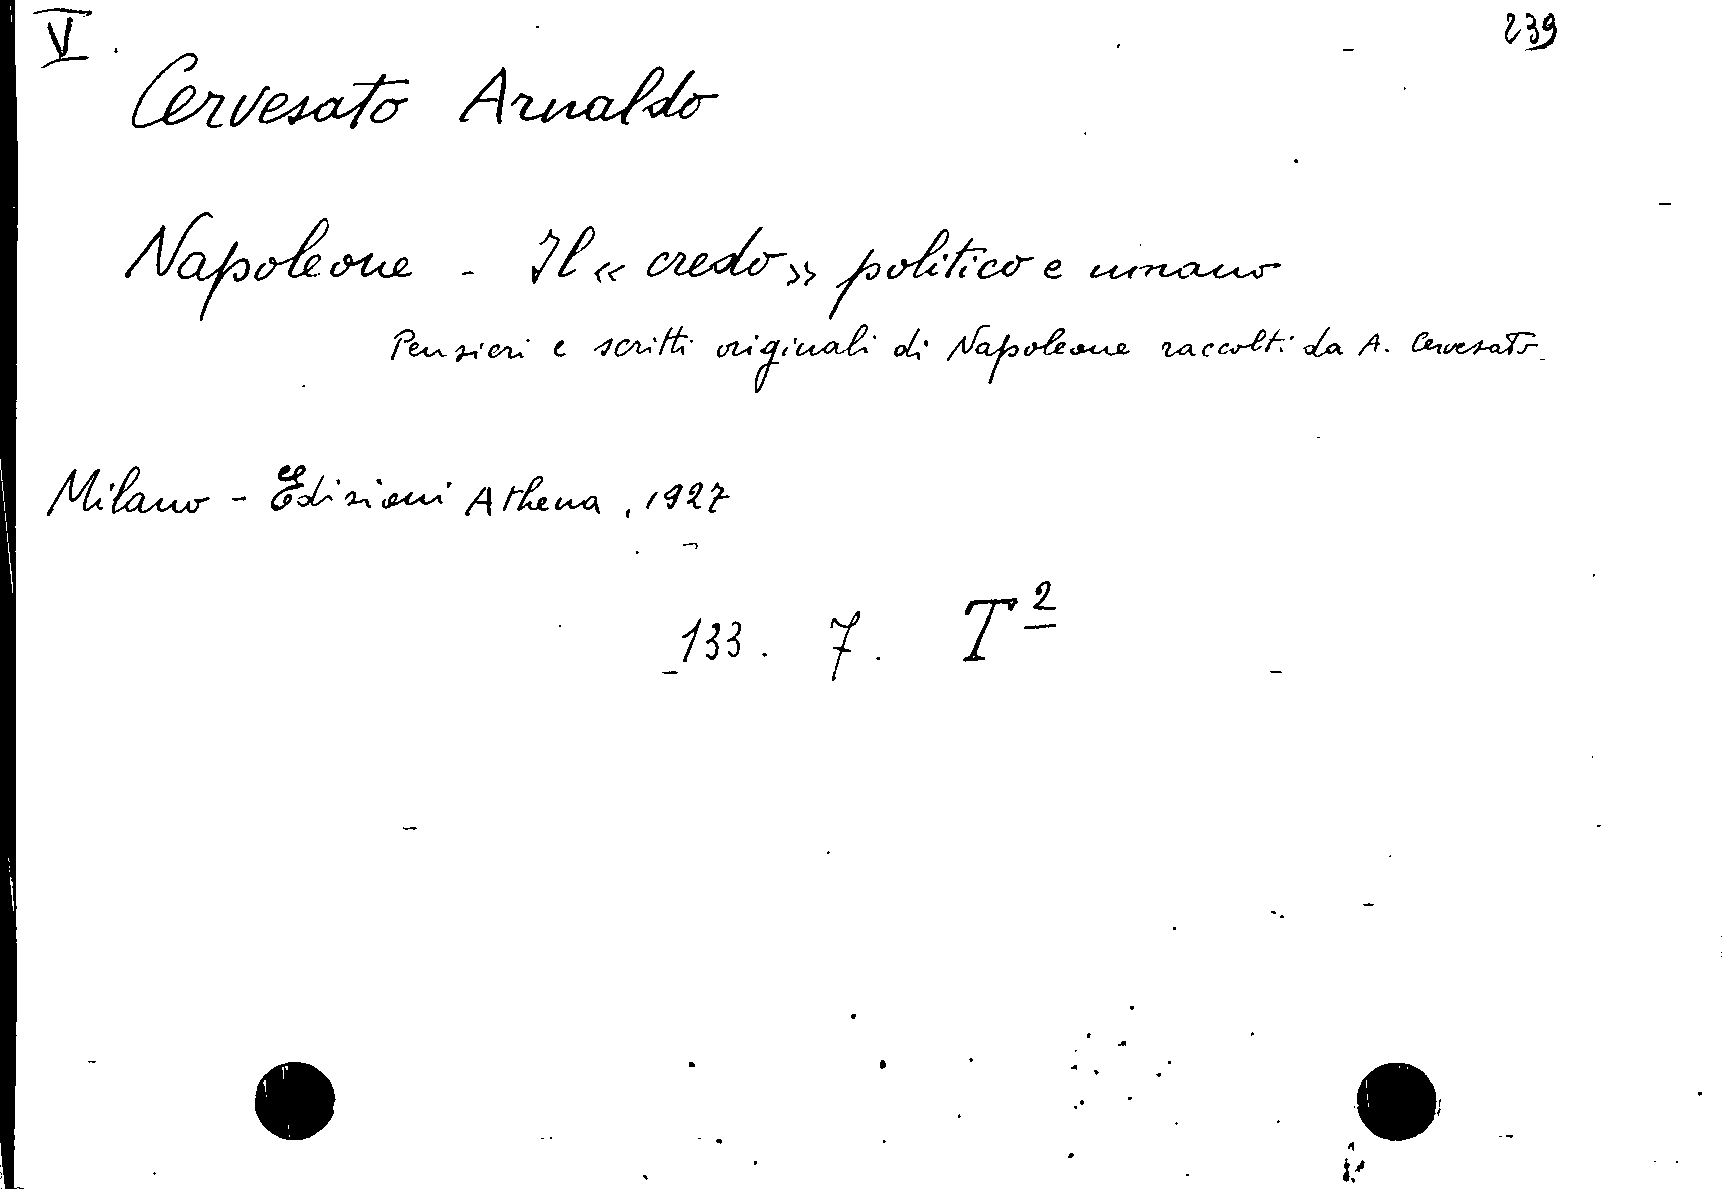 V. 239
Cervesato Arnaldo
Napoleone - Il « credo » politico e umano
Pensieri e scritti originali di Napoleone raccolti da A. Cervesato
Milano - Edizioni Athena, 1927
133. 7. T²